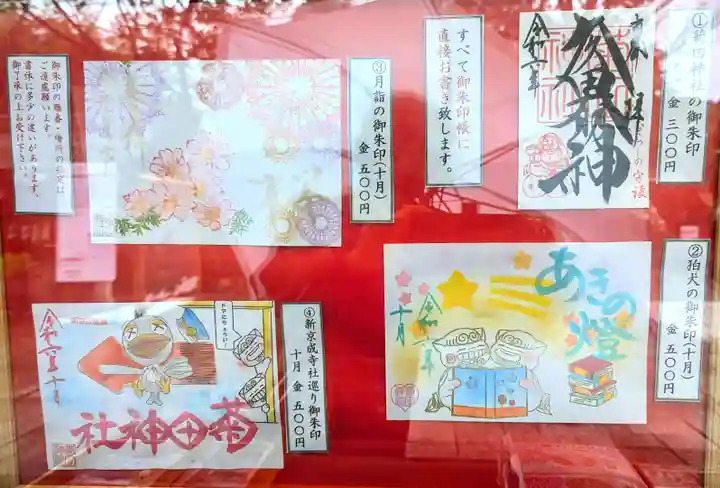 ①菊田神社の御朱印
金 三〇〇円
令和二年
すべて御朱印帳に
直接お書き致します。
③月詣の御朱印(十月)
金 五〇〇円
御朱印の順番・場所の指定は
ご遠慮願います。
書体に多少の違いがあります。
御了承の上お受け下さい。
②狛犬の御朱印(十月)
金 五〇〇円
あきの燈
令和二年
十月
④新京成寺社巡り御朱印
十月 金 五〇〇円
令和二年十月
菊田神社